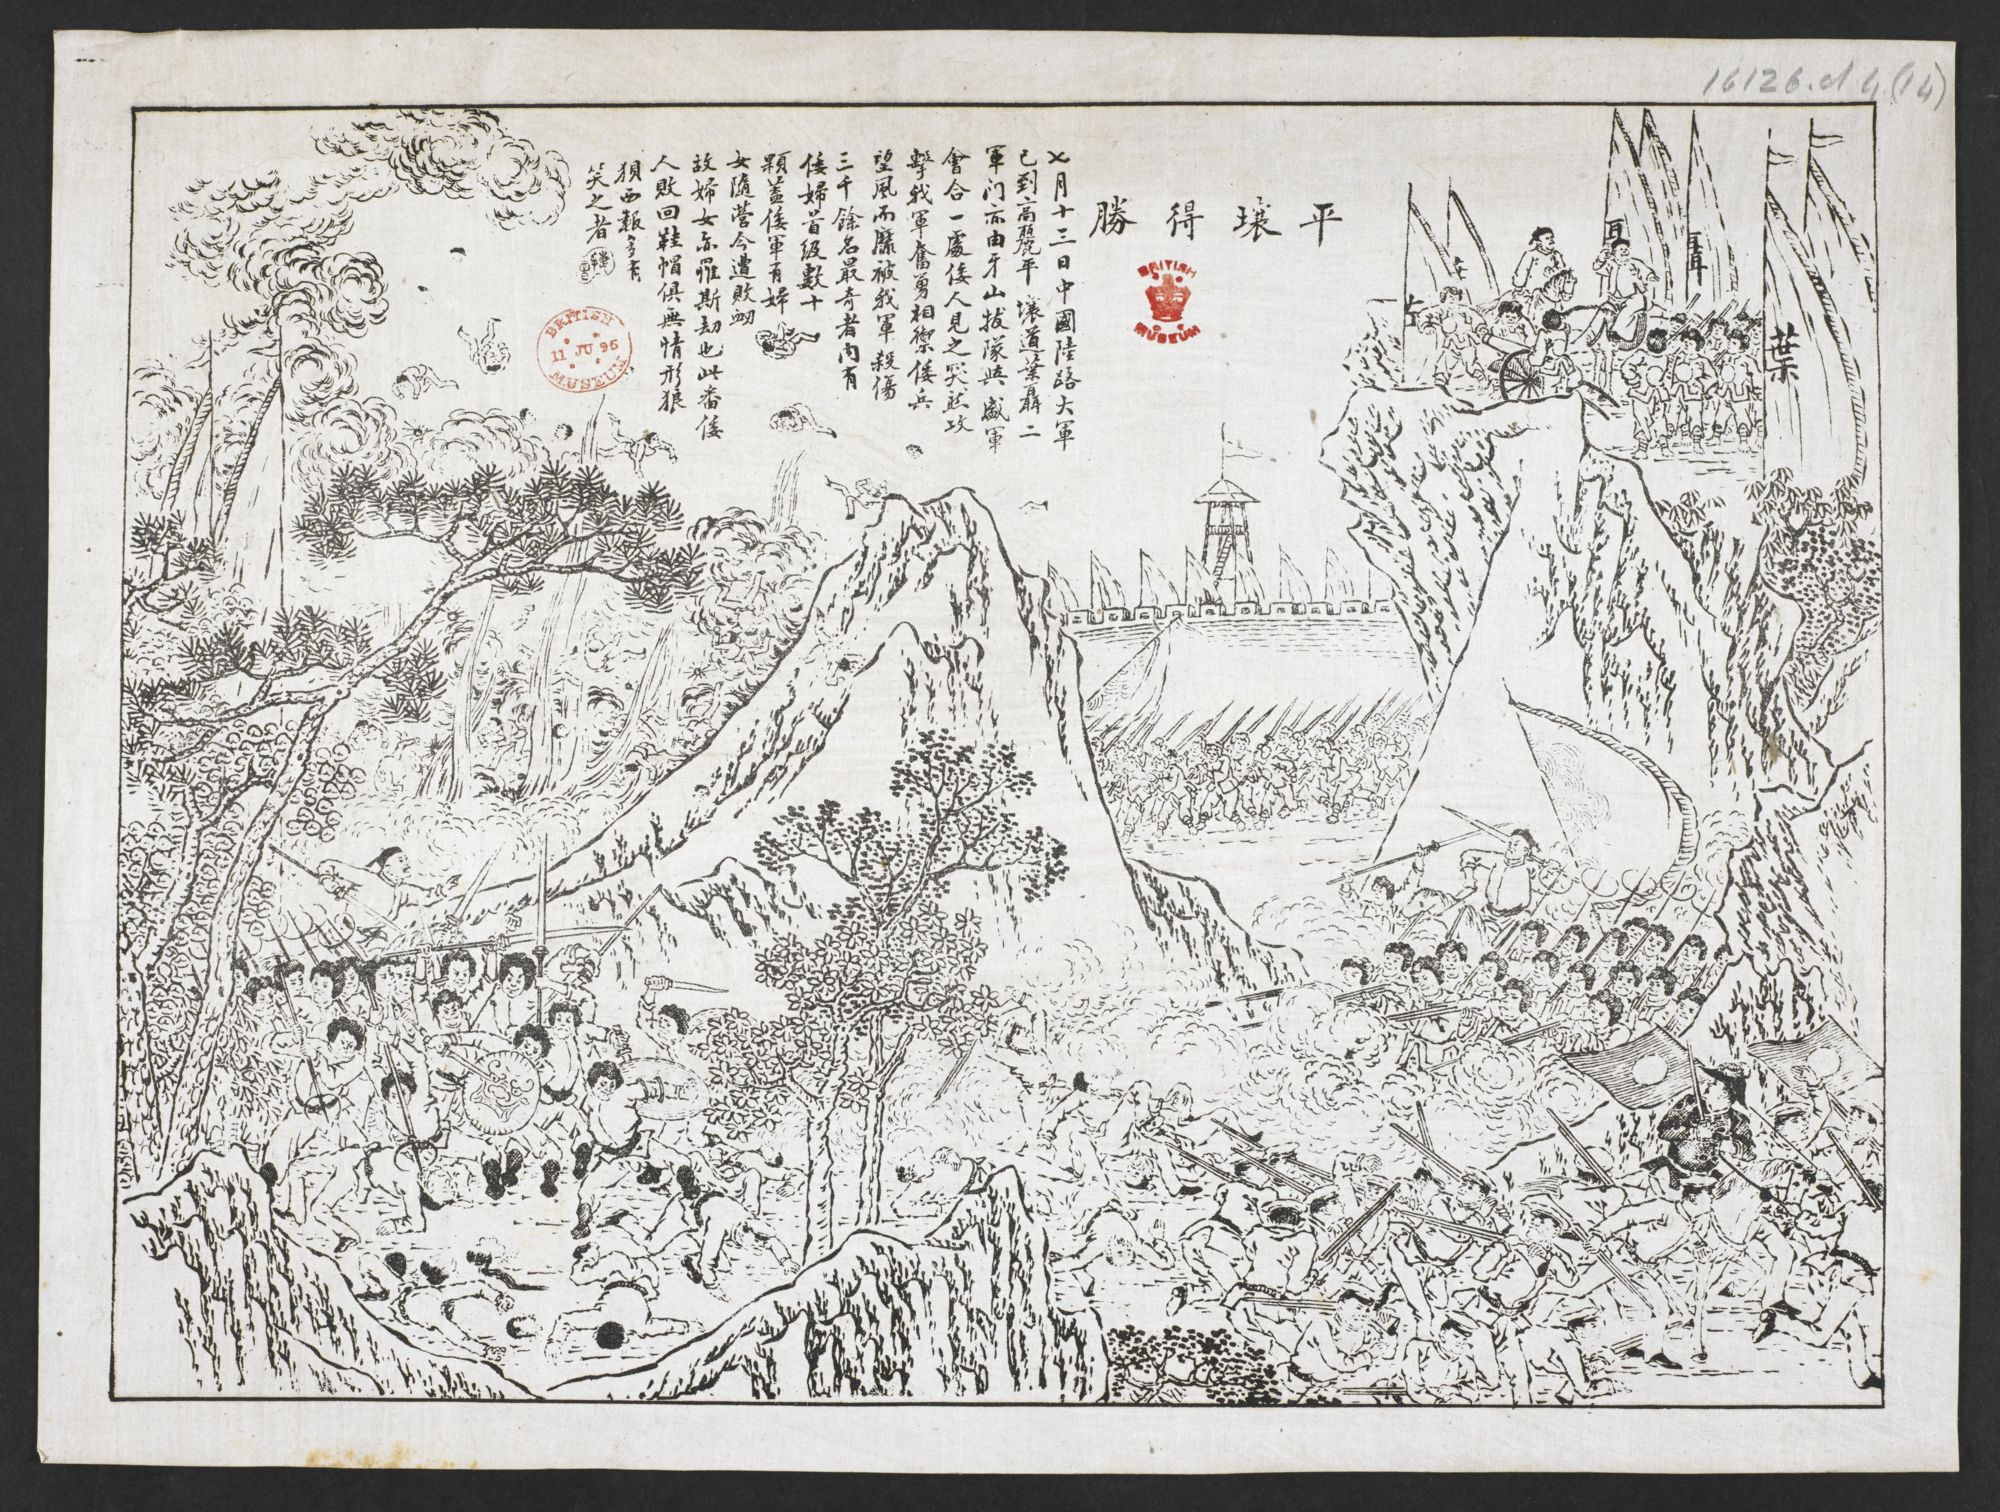 16126.d.4(14)
平壤得勝
七月十三日中國陸路大軍
已到高麗平壤道葉聶二
軍门亦由牙山拔隊與盛軍
會合一處倭人見之突然攻
擊我軍奮勇相禦倭兵
望風而靡被我軍殺傷
三千餘名最奇者内有
倭婦首級數十
顆蓋倭軍有婦
女隨營今遭敗衂
故婦女亦罹斯劫也此番倭
人敗回鞋帽俱無情形狼
狽西報多有
笑之者
BRITISH MUSEUM
BRITISH MUSEUM
11 JU 95
聶
葉